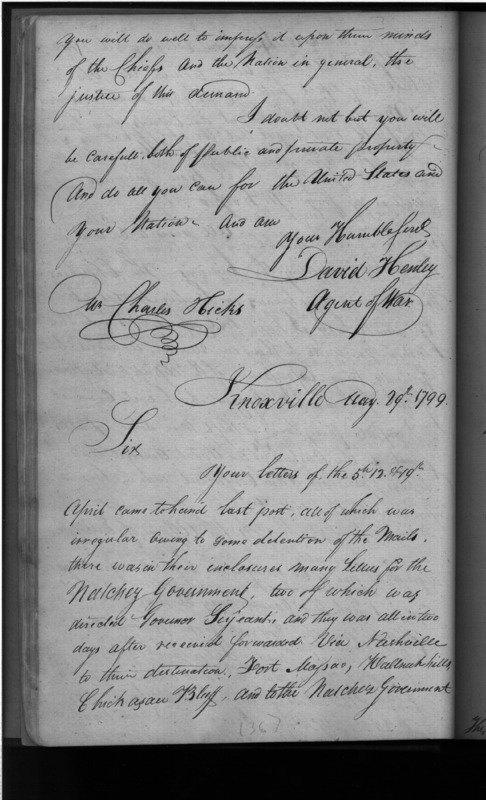 you will do well to impress it upon them minds
of the Chiefs and the Nation in general, the
justice of this demand.
I doubt not but you will
be carefull both of Public and private property
And do all you can for the United States and
your Nation and am
Your Humble Servt
David Henley
Agent of War
Mr Charles Hicks
Knoxville May 29th 1799.
Sir
Your letters of the 5th 12 & 19th
April came to hand last post, all of which was
irregular owing to some detention of the Mails,
there was in their enclosures many letters for the
Natchez Government, two of which was
directed Govenor Sergeant, and they was all in two
days after received forwarded Via Nashville
to their destination, Fort Massac, Wallnut hills
Chickasaw Bluff, and to the Natchez Government
(36)